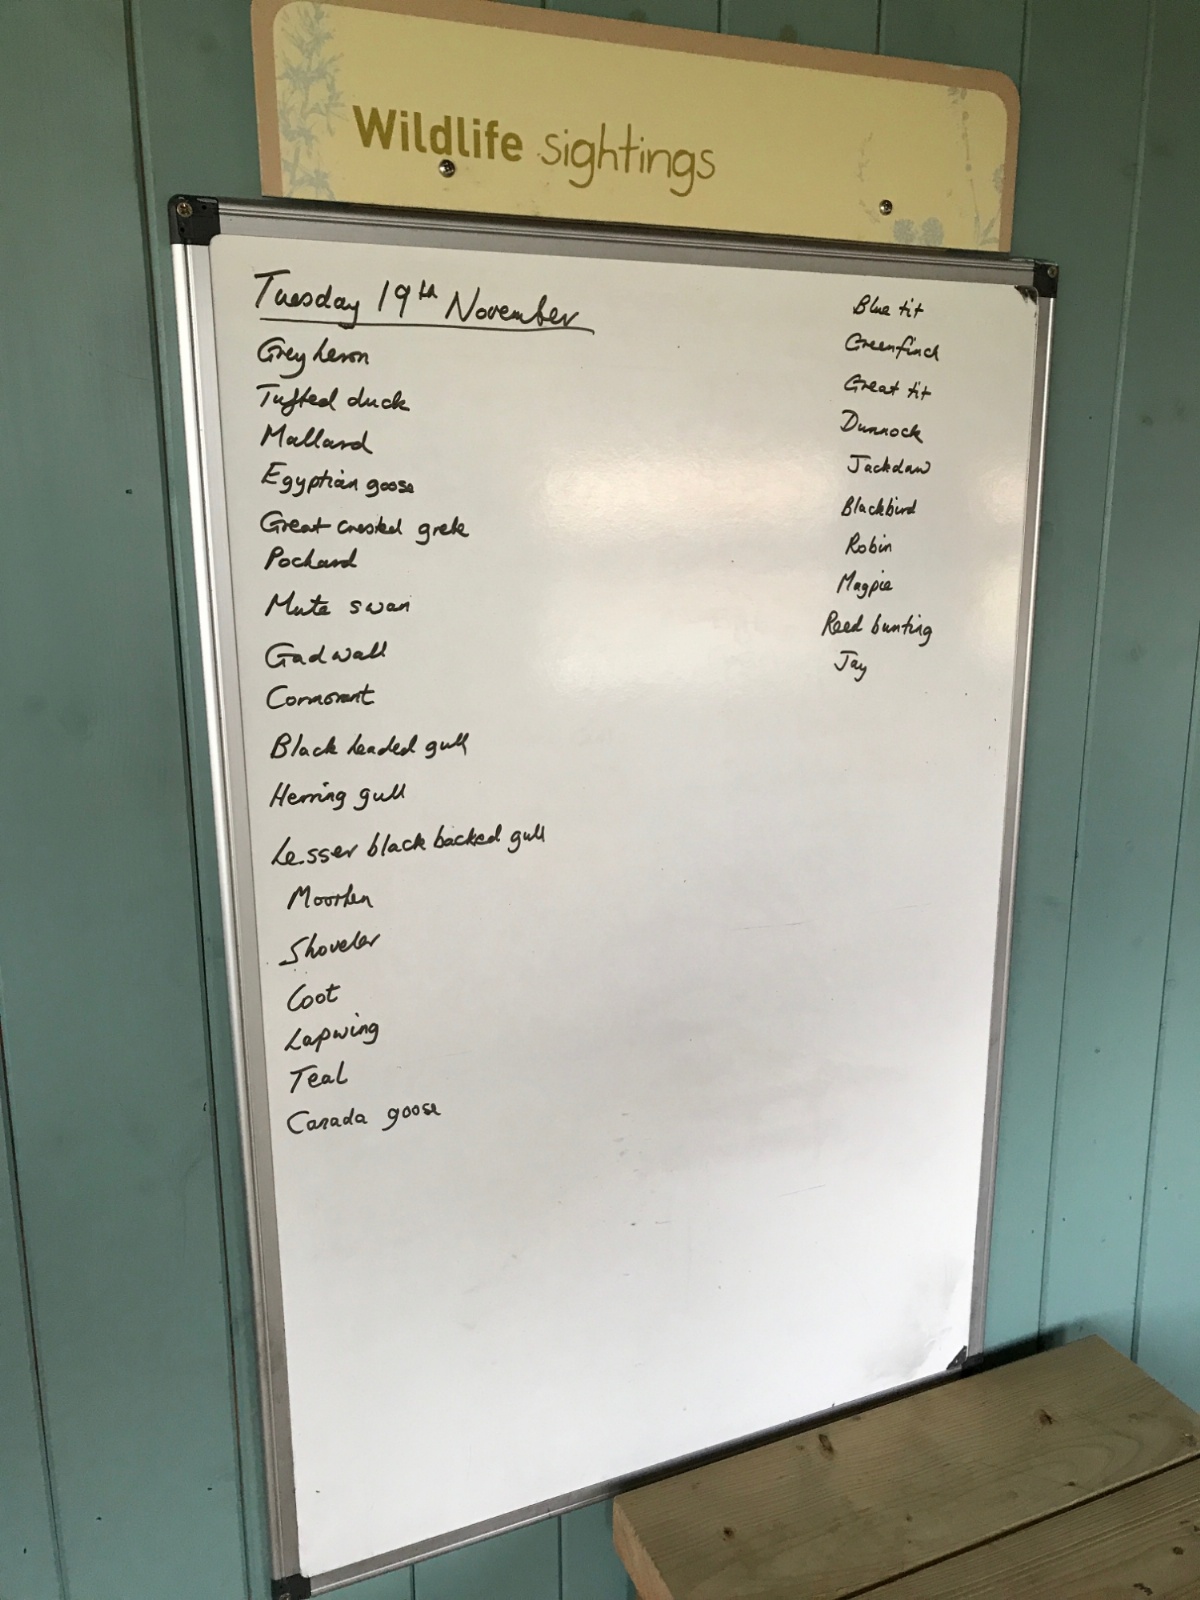 Wildlife sightings
Tuesday 19th November
Grey heron
Tufted duck
Mallard
Egyptian goose
Great crested grebe
Pochard
Mute swan
Gadwall
Cormorant
Black headed gull
Herring gull
Lesser black backed gull
Moorhen
Shoveler
Coot
Lapwing
Teal
Canada goose
Blue tit
Greenfinch
Great tit
Dunnock
Jackdaw
Blackbird
Robin
Magpie
Reed bunting
Jay